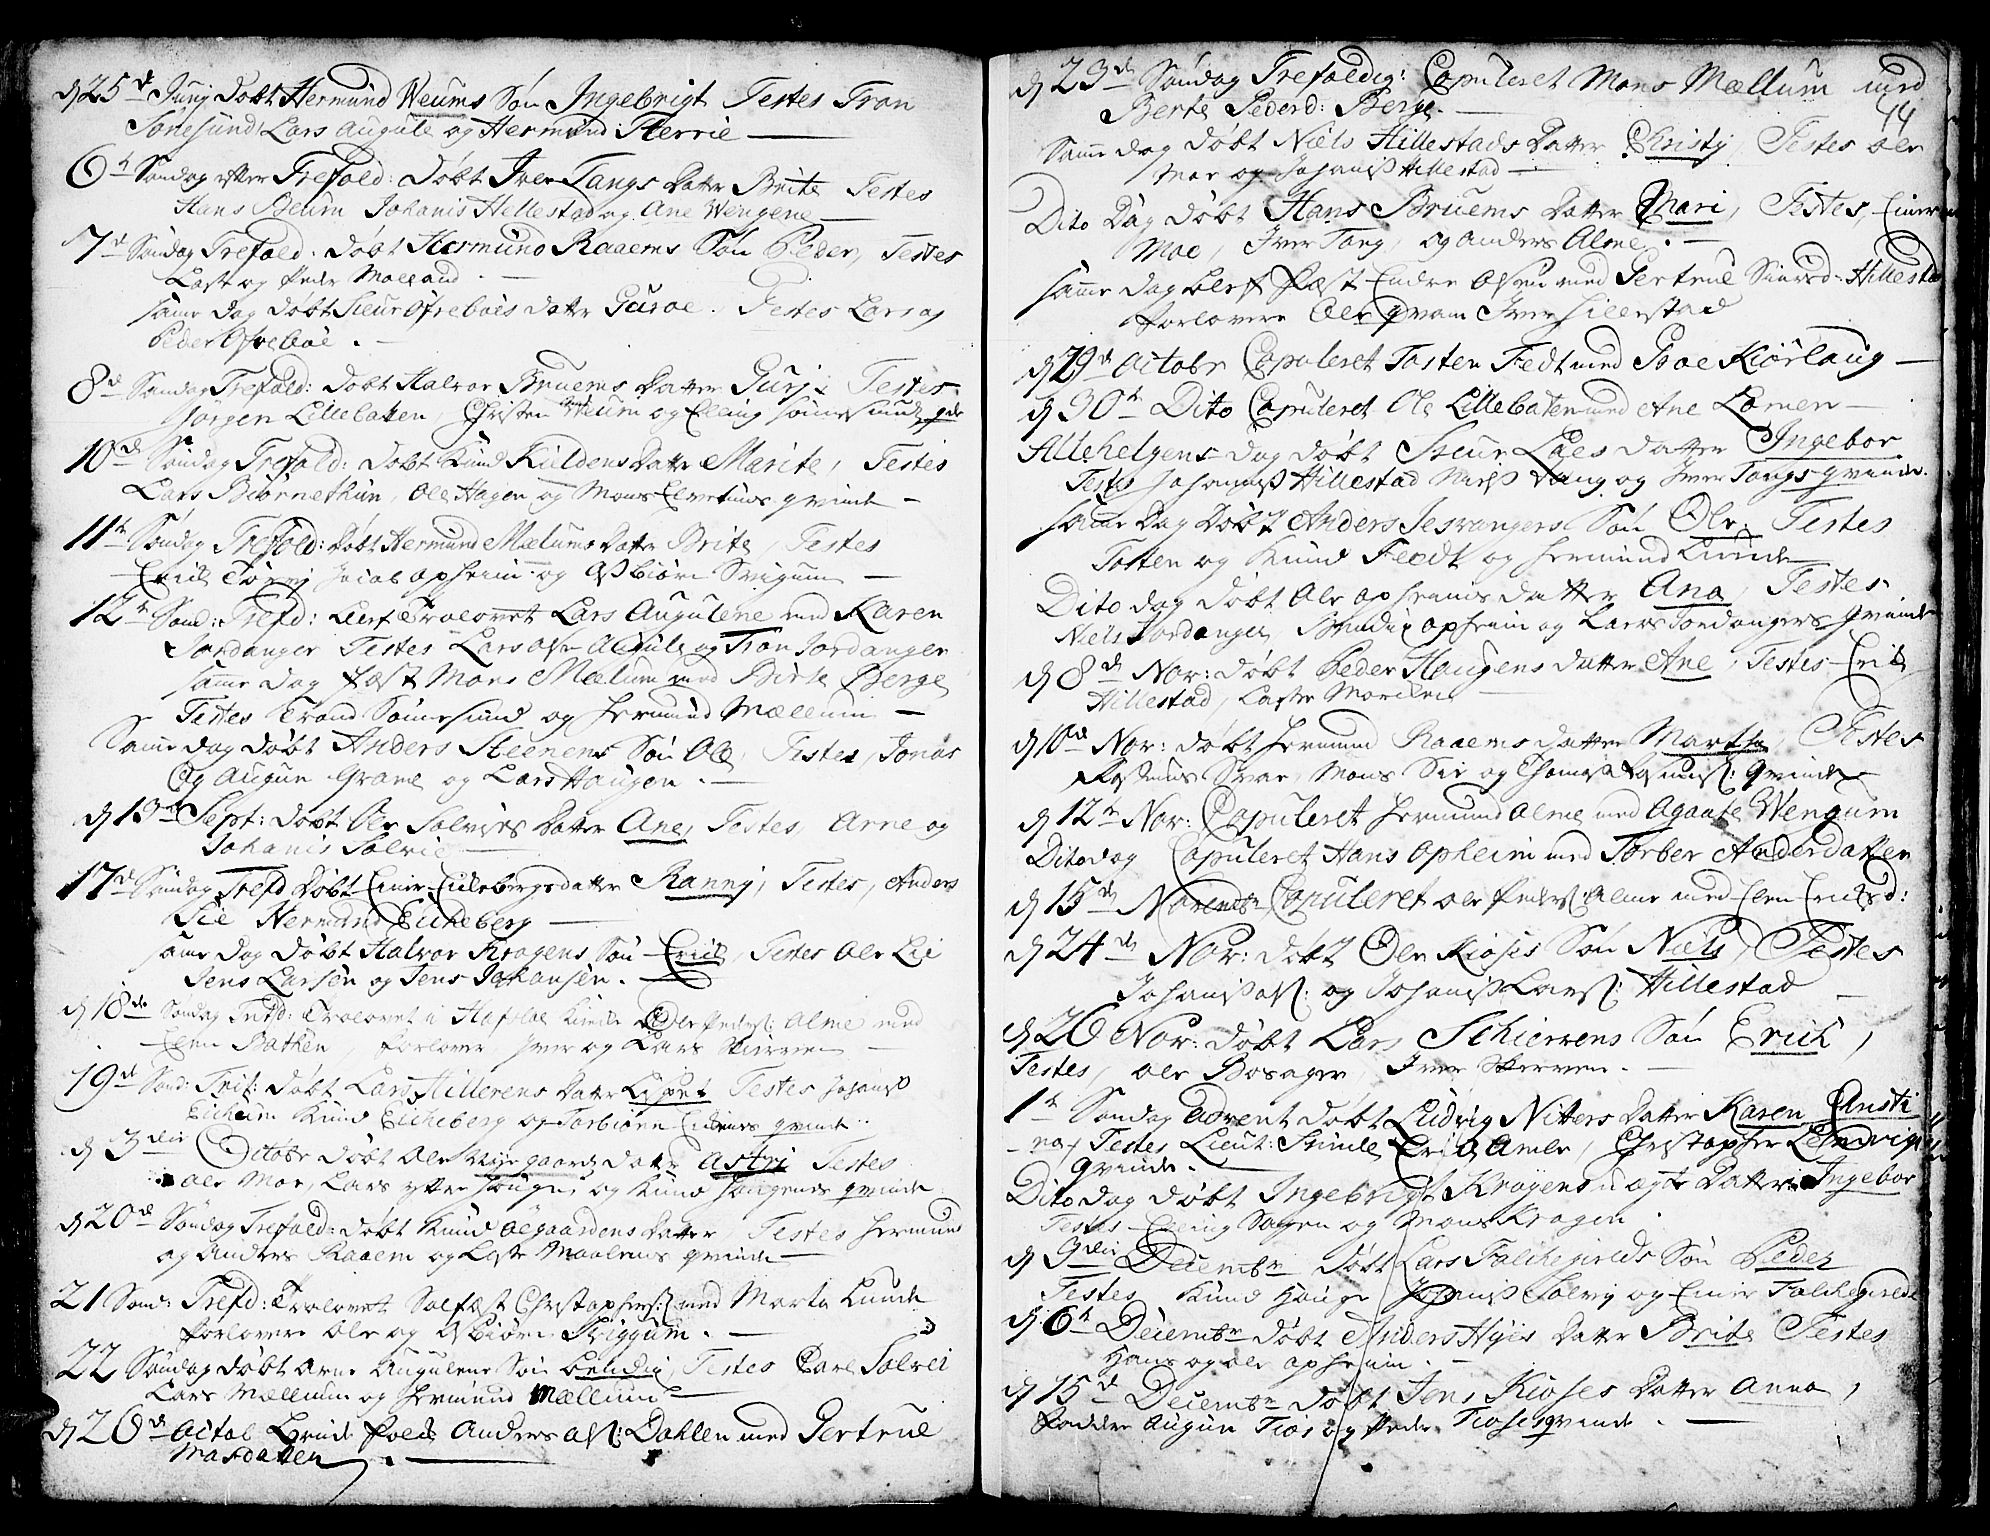 d 25de Junj døbt Hermund Weums Søn Ingebrigt Testes Tron
Sonesund, Lars Augule og Hermund Herrie
6te Søndag efter Trefold: døbt Iver Tangs Datter Brite Testes
Hans Beum Johanis Hillestad og Ane Wengene
7de Søndag Trefold: døbt Hermund Raaems Søn Peder, Testes
Laste og Peder Moland
same dag døbt Siur Ofrebøes datter Guroe. Testes Lars og
Peder Ofrebøe.
8de Søndag Trefold: døbt Halvor Bruems Datter Gurj: Testes
Jørgen Lillebaken, Christen Weum og Elling Sonnesunds qde
10de Søndag Trefold: døbt Knud Kuldens Datter Marite, Testes
Lars Biørnethun, Ole Hagen og Mons Elvetuns qvinde
11te Søndag Trefold: døbt Hermund Mælums Datter Brite, Testes
Erich Tørvj Jacob Opheim og Asbiørn Svigum
12te Sønd: Trefd: blef Trolovet Lars Augulene med Karen
Jordanger Testes Lars Ols: Augule og Tron Jordanger
same Dag fæst Mons Mælum med Birte Berge
Testes Trond Sonnesund og Hermund Mællum
Same dag døbt Anders Steenens Søn Ole, Testes, Jonas
og Augun Grave og Lars Haugen.
d 13de Sept: døbt Ole Solvjes Datter Ane, Testes, Arne og
Johanis Solvie
17de Søndag Trefd døbt Einer Eichebergs datter Ranny, Testes, Anders
Lie Hermund Eicheberg
same dag døbt Halvor Kragens Søn Erich, Testes Ole Lie
Jens Larsen og Jens Johansen.
d 18de Søndag Trefd: Trolovet i Hafsloe Kirke Ole Peders: Alme med
Elen Bathen forlover, Iver og Lars Skierven
19de Sønd: Tref: døbt Lars Hillerens Datter Lisbet Testes Johanis
Eicheim Knud Eicheberg og Torbiørn Eidens qvinde
d 3die Octobr døbt Ole Nyegaards datter Astri Testes
Ole Moe, Lars ytter Hougne og Knud Hougenes qvinde
d 20de Søndag Trefold: døbt Knud Ølgaardens Datter Testes Hermund
og Anders Raaem og Laste Moelens qvinde
21 Sønd: Trefd: Trolovet Solfæst Christophers: med Marta Lunde
forlovere Ole og Asbiørn Sviggum.
22 Søndag døbt Arne Augulene Søn bendig, Testes Carl Solvei
Lars Mællum og Hermund Mællum
d 26de Octob Anders Ols: Dahlen med Gertrue
Masdatter
d 23de Søndag Trefoldig: Copuleret Mons Mællum med
44
Berte Pederd: Berge.
Same dag døbt Niels Hillestads Datter Christj, Testes Ole
Moe og Johanis Hillestad
Dito Dag døbt Hans Bruems Datter Mari, Testes, Einer
Moe, Iver Tang, og Anders Alme.
same dag blef fæst Endre Olsen med Gertrue Siursd: Hillestad
forlovere Ole Qvam Iver Hillestad
d 29de Octobr Copuleret Tosten Fedt med Boe Kiørlaug
d 30te Dito Copuleret Ole Lillebaten med Ane Lomen
Allehelgens dag døbt Siur Lies datter Ingebor
Testes Johanis Hillestad Niels Tang og Iver Tangs qvinde.
same Dag Døbt Anders Jesvangers Søn Ole, Testes
Tosten og Knud Feedt og Hermund Lunde
Dito dag døbt Ole Opheims datter Ana, Testes
Niels Jordanger, Bendix Opheim og Lars Jordangers Qvinde
d 8de Nov: døbt Peder Haugens datter Ane, Testes Erich
Hillestad, Laste Morchen
d 10de Nov: døbt Hermund Raaems datter Martha Testes
Rasmus Svar, Mons Sie og Thomas Rasmus: Qvinde
d 12te Nov: Copuleret Hermund Alme med Agaate Wengum
Ditodag Copuleret Hans Opheim med Torber Andersdatter
d 15de Novembr Copuleret Ole Peders: Alme med Elen Erichsd:
d 24de Nov: døbt Ole Kioses Søn Niels, Testes
Johanis Ols: og Johanis Lars: Hillestad
d 26 Nov: døbt Lars Schiervens Søn Erich,
Testes, Ole Bosager, Iver Skierven.
1te Søndag Advent døbt Ludvig Nitters Datter Karen Christi
-na, Testes Lieut: Munte Erich Amle, Christopher Lendvigs
Qvinde.
Dito dag døbt Ingebrigt Kragens uægte Datter Ingebor
Testes Elling Sogen og Mons Kragen.
d 3die Decembr Døbt Lars Falchegjerds Søn Peder
Testes Knud Houge Johanis Solvig og Einer Falchegierde
d 6te Decembr døbt Anders Hyis Datter Brite Testes
Hans og Ole Opheim.
d 15de Decembr døbt Jens Kioses Datter Anna,
Faddere Augun Kiøs og Peder Kioses qvinde.